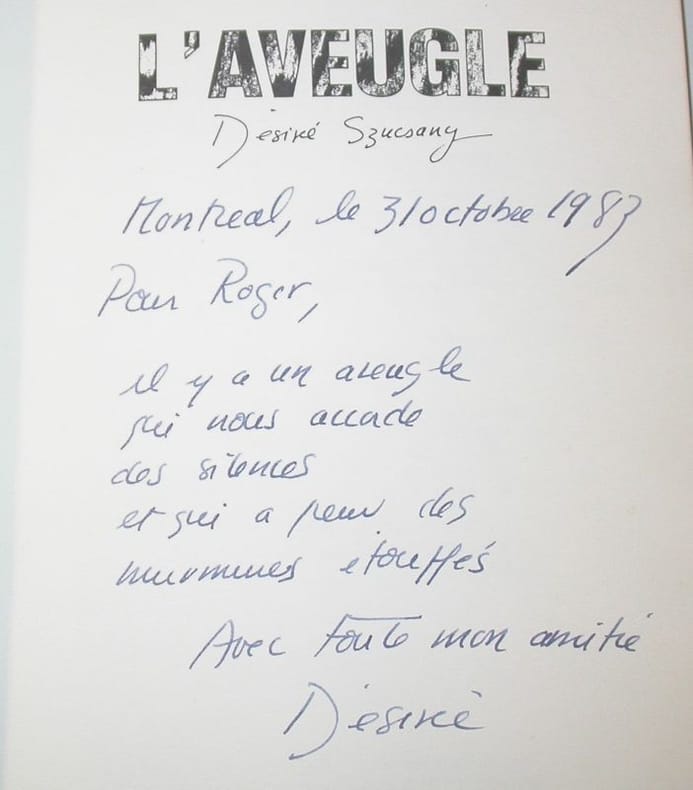 L'AVEUGLE
Désiré Szucsany
Montréal, le 31 octobre 1983
Pour Roger,
il y a un aveugle
qui nous accorde
des silences
et qui a peur des
murmures étouffés
Avec toute mon amitié
Désiré